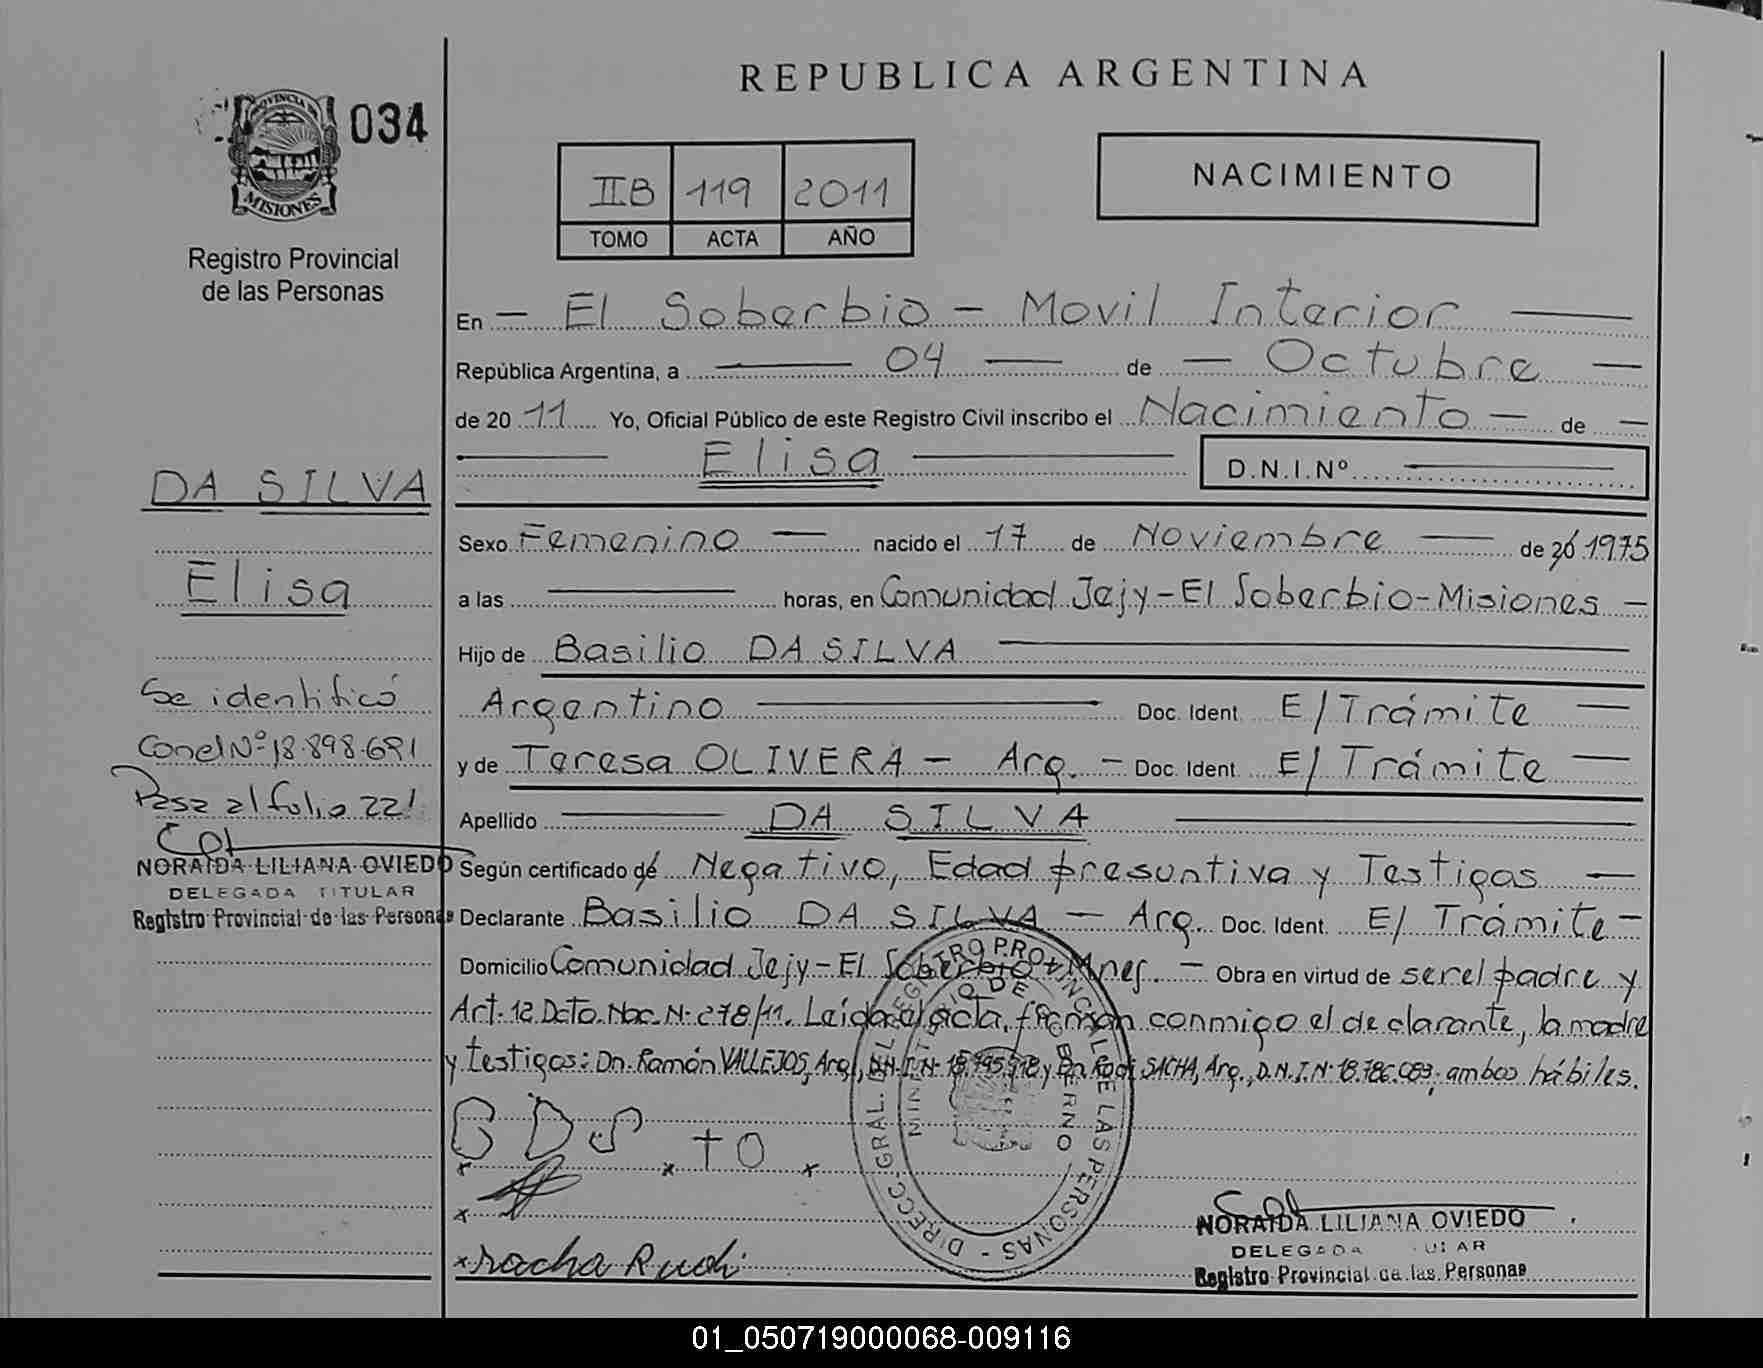 REPUBLICA ARGENTINA
PROVINCIA DE
MISIONES
034
Registro Provincial
de las Personas
IIB 119 2011
TOMO ACTA AÑO
NACIMIENTO
En — El Soberbio — Movil Interior —
República Argentina, a — 04 — de — Octubre —
de 2011 Yo, Oficial Público de este Registro Civil inscribo el Nacimiento — de —
— Elisa —
D.N.I.Nº —
DA SILVA
Elisa
Se identificó
Con el Nº 18.898.691
Pasa al folio 22!
NORAIDA LILIANA OVIEDO
DELEGADA TITULAR
Registro Provincial de las Personas
Sexo Femenino — nacido el 17 de Noviembre — de 20 1975
a las — horas, en Comunidad Jejy - El Soberbio - Misiones —
Hijo de Basilio DA SILVA —
Argentino — Doc. Ident. E/Trámite —
y de Teresa OLIVERA — Arg. — Doc. Ident. E/Trámite —
Apellido — DA SILVA —
Según certificado de Negativo, Edad presuntiva y Testigos —
Declarante Basilio DA SILVA — Arg. Doc. Ident. E/ Trámite —
Domicilio Comunidad Jejy - El Soberbio - Mnes. — Obra en virtud de ser el padre y
Art. 12 Dcto. Nac. Nº 278/11. Leída el acta, firman conmigo el declarante, la madre
y testigos: Dn. Ramón VALLEJOS, Arg., D.N.I. Nº y Dn. SACHA, Arg., D.N.I. Nº 18.786.083, ambos hábiles.
DIRECC. GRAL. DEL REGISTRO PROVINCIAL DE LAS PERSONAS
MINISTERIO DE GOBIERNO
B D S + O
x x x
x
x Sacha Rudi
NORAIDA LILIANA OVIEDO
DELEGADA
Registro Provincial de las Personas
01_050719000068-009116